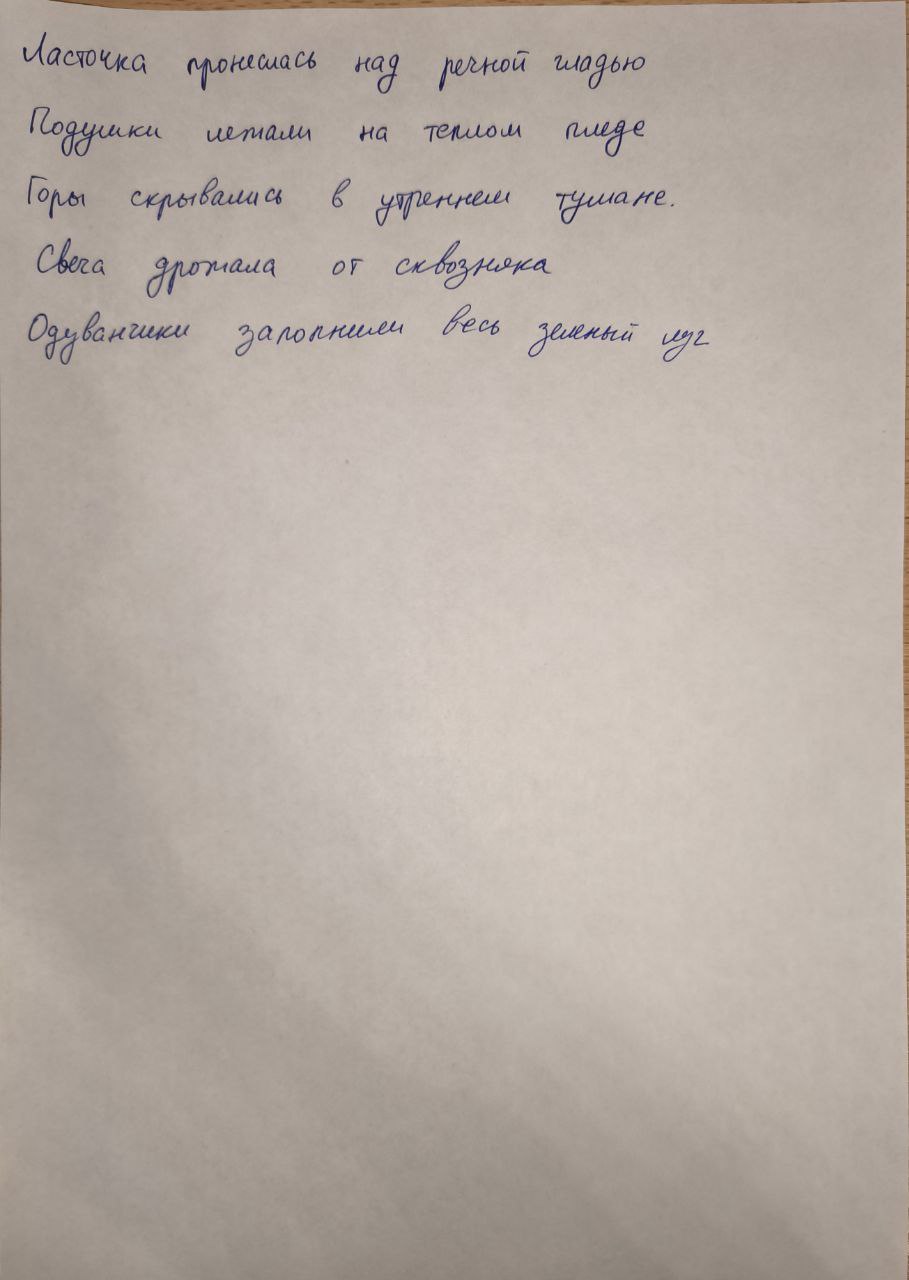 Ласточка пронеслась над речной гладью
Подушки лежали на теплом пледе
Горы скрывались в утреннем тумане.
Свеча дрожала от сквозняка
Одуванчики заполнили весь зеленый луг